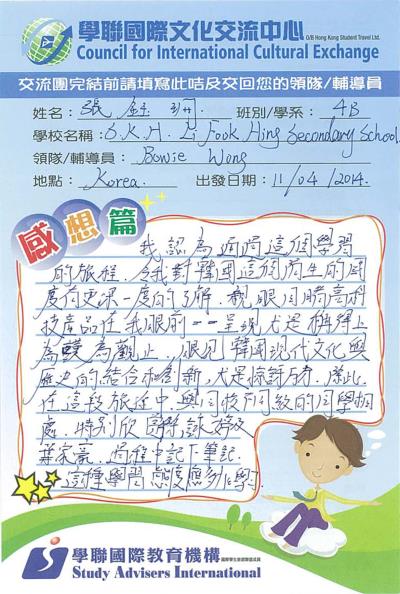 學聯國際文化交流中心
O/B Hong Kong Student Travel Ltd.
Council for International Cultural Exchange
交流團完結前請填寫此咭及交回您的領隊/輔導員
姓名： 張 班別/學系： 4B
學校名稱： S.K.H. Li Fook Hing Secondary School.
領隊/輔導員： Bowie Wong
地點： Korea. 出發日期： 11/04/2014.
感想篇
我認為通過這個學習
的旅程，令我對韓國這個陌生的國
度有更深一度的了解。親眼目睹高科
技產品在我眼前一一呈現尤是稱得上
為嘆為觀止。眼見韓國現代文化與
歷史的結合和創新，尤是
在這段旅途中，與同校同級的同學相
處，特別欣賞
葉 過程中記下筆記。
這種學習態度應多
學聯國際教育機構
Study Advisers International